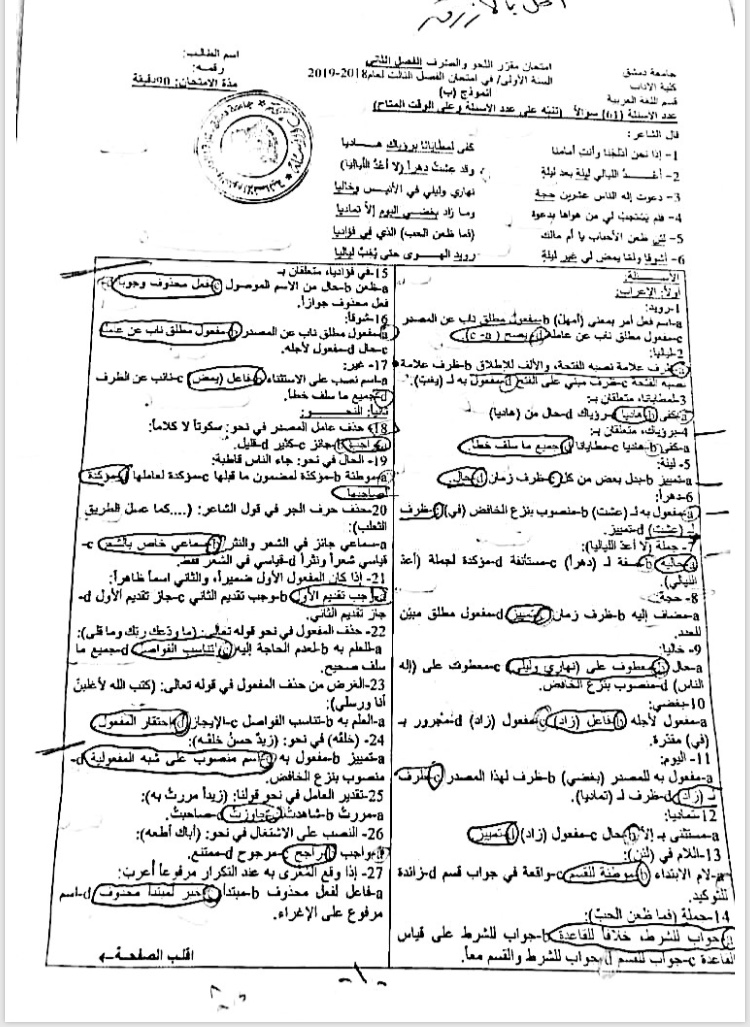 الحل بالأزرق
جامعة دمشق
كلية الآداب
قسم اللغة العربية
امتحان مقرّر النحو والصرف الفصل الثاني
السنة الأولى/ في امتحان الفصل الثالث لعام 2018-2019
أنموذج (ب)
اسم الطالب:
رقمه:
مدة الامتحان: 90دقيقة
عدد الأسئلة (61) سؤالاً (تنبّه على عدد الأسئلة وعلى الوقت المتاح)
قال الشاعر:
1- إذا نحن أدلجنا وأنتِ أمامنا كفى لمطايانا برؤياك هاديا
2- أعُدّ الليالي ليلة بعد ليلةٍ وقد عشتُ دهراً (لا أعُدّ اللياليا)
3- دعوت إله الناس عشرين حجة نهاري وليلي في الأنيس وخاليا
4- فلم يستجب لي من هواها بدعوة وما زاد بغضي اليوم إلاّ تماديا
5- لئن ظعن الأحباب يا أم مالك (فما ظعن الحب) الذي في فؤاديا
6- أشوقاً ولمّا يمض لي غير ليلةٍ رويد الهوى حتى يُغبّ لياليا
الأسئلة:
أولاً: الإعراب:
1-رويد:
a-اسم فعل أمر بمعنى (أمهل) b-مفعول مطلق ناب عن المصدر
c-مفعول مطلق ناب عن عامله d-يصح (c - a).
2-لياليا:
a-ظرف علامة نصبه الفتحة، والألف للإطلاق b-ظرف علامة
نصبه الفتحة c-ظرف مبني على الفتح d-مفعول به لـ (يغبّ).
3-لمطايانا، متعلقان بـ:
a-كفى b-هاديا c-برؤياك d-حال من (هاديا)
4-برؤياك، متعلقان بـ:
a-كفى b-هديا c-مطايانا d-جميع ما سلف خطأ.
5- ليلة:
a-تمييز b-بدل بعض من كل c-ظرف زمان d-حال.
6-دهراً:
a-مفعول به لـ (عشت) b-منصوب بنزع الخافض (في) c-ظرف
لـ (عشت) d-تمييز.
7- جملة (لا أعدّ اللياليا):
a-حالية b-صفة لـ (دهراً) c-مستأنفة d-مؤكدة لجملة (أعدّ
الليالي).
8- حجة:
a-مضاف إليه b-ظرف زمان c-تمييز d-مفعول مطلق مبيّن
للعدد.
9- خاليا:
a-حال b-معطوف على (نهاري وليلي) c-معطوف على (إله
الناس) d-منصوب بنزع الخافض.
10-بغضي:
a-مفعول لأجله b-فاعل (زاد) c-مفعول (زاد) d-مجرور بـ
(في) مقدّرة.
11- اليوم:
a-مفعول به للمصدر (بغضي) b-ظرف لهذا المصدر c-ظرف
لـ (زاد) d-ظرف لـ (تماديا).
12-تماديا:
a-مستثنى بـ إلاّ b-حال c-مفعول (زاد) d-تمييز
13-اللام في (لئن):
a-لام الابتداء b-موطئة للقسم c-واقعة في جواب قسم d-زائدة
للتوكيد.
14-جملة (فما ظعن الحبّ):
a-جواب للشرط، خلافاً للقاعدة b-جواب للشرط على قياس
القاعدة c-جواب للقسم d-جواب للشرط والقسم معاً.
15-في فؤاديا، متعلقان بـ
a-ظعن b-حال من الاسم الموصول c-فعل محذوف وجوباً d-
فعل محذوف جوازاً.
16-شوقاً:
a-مفعول مطلق ناب عن المصدر b-مفعول مطلق ناب عن عامله
c-حال d-مفعول لأجله.
17- غير:
a-اسم نصب على الاستثناء b-فاعل (يمض) c-نائب عن الظرف
d-جميع ما سلف خطأ.
ثانياً: النحو:
18- حذف عامل المصدر في نحو: سكوتاً لا كلاماً:
a-واجب b-جائز c-كثير d-قليل.
19- الحال في نحو: جاء الناس قاطبة:
a-موطئة b-مؤكدة لمضمون ما قبلها c-مؤكدة لعاملها d-مؤكدة
لصاحبها
20-حذف حرف الجر في قول الشاعر: (....كما عسل الطريق
الثعلب):
a-سماعي جائز في الشعر والنثر b-سماعي خاص بالشعر c-
قياسي شعراً ونثراً d-قياسي في الشعر فقط.
21- إذا كان المفعول الأول ضميراً، والثاني اسماً ظاهراً:
a-وجب تقديم الأول b-وجب تقديم الثاني c-جاز تقديم الأول d-
جاز تقديم الثاني.
22- حذف المفعول في نحو قوله تعالى: (ما ودّعك ربّك وما قلى):
a-للعلم به b-لعدم الحاجة إليه c-لتناسب الفواصل d-جميع ما
سلف صحيح.
23-الغرض من حذف المفعول في قوله تعالى: (كتب الله لأغلبنّ
أنا ورسلي):
a-العلم به b-تناسب الفواصل c-الإيجاز d-احتقار المفعول
24- (خلقه) في نحو: (زيدٌ حسنٌ خلقَه):
a-تمييز b-مفعول به c-اسم منصوب على شبه المفعولية d-
منصوب بنزع الخافض.
25-تقدير العامل في نحو قولنا: (زيداً مررتُ به):
a-مررتُ b-شاهدتُ c-جاوزتُ d-صاحبتُ.
26- النصب على الاشتغال في نحو: (أباك أطعه):
a-واجب b-راجح c-مرجوح d-ممتنع.
27- إذا وقع المغرى به عند التكرار مرفوعاً أُعرب:
a-فاعل لفعل محذوف b-مبتدأ c-خبر لمبتدأ محذوف d-اسم
مرفوع على الإغراء.
اقلب الصفحة←
-١-